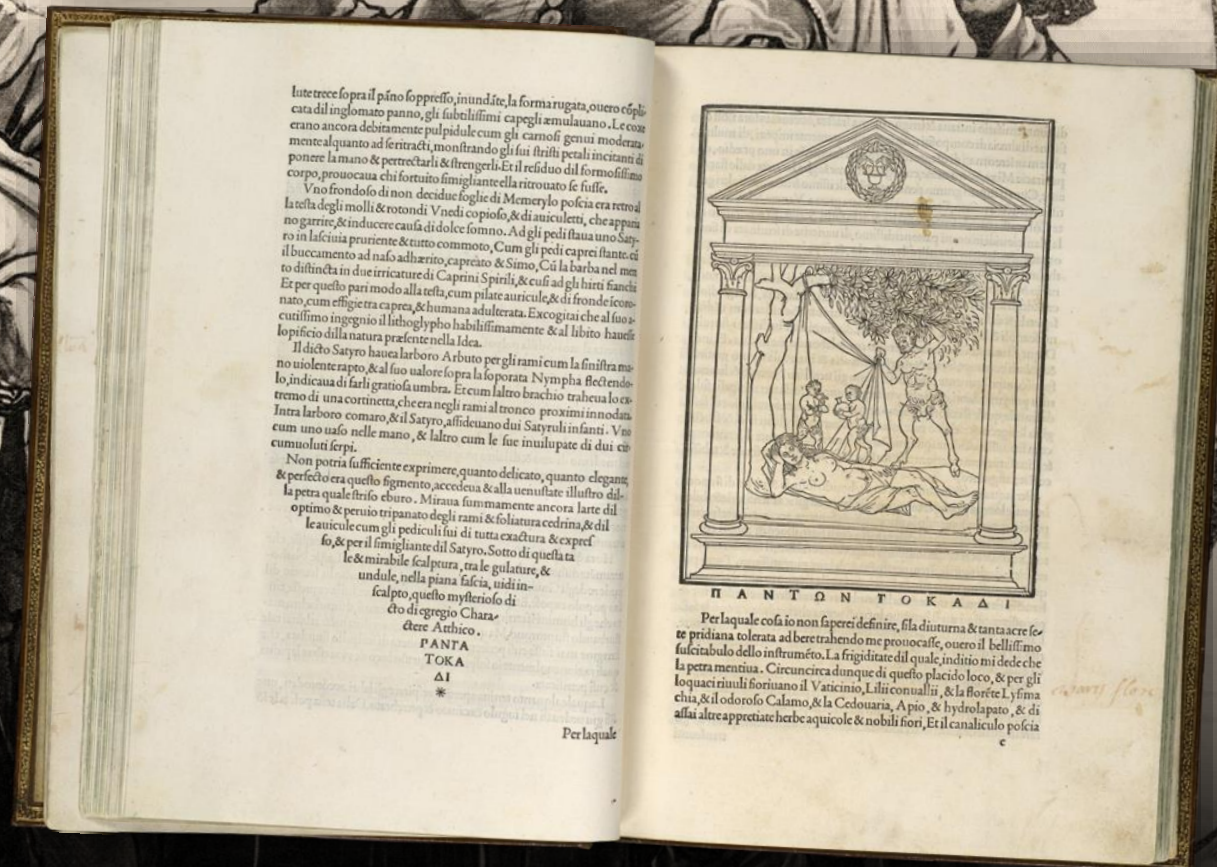 lute trece sopra il páno soppresso, inundáte, la forma rugata, ouero cõpli-
cata dil inglomato panno, gli subtilissimi capegli æmulauano. Le coxe
erano ancora debitamente pulpidule cum gli carnosi genui moderata-
mente alquanto ad se ritracti, monstrando gli sui stristi petali incitanti di
ponere la mano & pertrectarli & strengerli. Et il residuo dil formosissimo
corpo, prouocaua chi fortuito simigliante ella ritrouato se fusse.
Vno frondoso di non decidue foglie di Memerylo poscia era retro al
la testa degli molli & rotondi Vnedi copioso, & di auiculetti, che appariua
no garrire, & inducere causa di dolce somno. Ad gli pedi staua uno Saty-
ro in lasciuia pruriente & tutto commoto, Cum gli pedi caprei stante. cũ
il buccamento ad naso adhærito, capreato & Simo, Cũ la barba nel men
to distincta in due irricature di Caprini Spirili, & cusi ad gli hirti fianchi
Et per questo pari modo alla testa, cum pilate auricule, & di fronde icoro-
nato, cum effigie tra caprea, & humana adulterata. Excogitai che al suo a-
cutissimo ingegnio il lithoglypho habilissimamente & al libito hauesse
lopificio dilla natura præsente nella Idea.
Il dicto Satyro hauea larboro Arbuto per gli rami cum la sinistra ma-
no uiolente rapto, & al suo ualore sopra la soporata Nympha flectendo-
lo, indicaua di farli gratiosa umbra. Et cum laltro brachio traheua lo ex-
tremo di una cortinetta, che era negli rami al tronco proximi innodata.
Intra larboro comaro, & il Satyro, assideuano dui Satyruli infanti. Vno
cum uno uaso nelle mano, & laltro cum le sue inuilupate di dui cir-
cumuoluti serpi.
Non potria sufficiente exprimere, quanto delicato, quanto elegante,
& perfecto era questo figmento, accedeua & alla uenustate illustro dil-
la petra quale striso eburo. Miraua summamente ancora larte dil
optimo & peruio tripanato degli rami & foliatura cedrina, & dil
le auicule cum gli pediculi sui di tutta exactura & expres
so, & per il simigliante dil Satyro. Sotto di questa ta
le & mirabile scalptura, tra le gulature, &
undule, nella piana fascia, uidi in-
scalpto, questo mysterioso di
cto di egregio Chara-
ctere Atthico.
ΡΑΝΤΑ
ΤΟΚΑ
ΔΙ
*
Per laquale
ΠΑΝΤΩΝ ΤΟΚΑΔΙ
Per laquale cosa io non saperei definire, si la diuturna & tanta acre se-
te pridiana tolerata ad bere trahendo me prouocasse, ouero il bellissimo
suscitabulo dello instruméto. La frigiditate dil quale, inditio mi dede che
la petra mentiua. Circuncirca dunque di questo placido loco, & per gli
loquaci riuuli fioriuano il Vaticinio, Lilii conuallii, & la floréte Lysima
chia, & il odoroso Calamo, & la Cedouaria, Apio, & hydrolapato, & di
assai altre appretiate herbe aquicole & nobili fiori, Et il canaliculo poscia
c